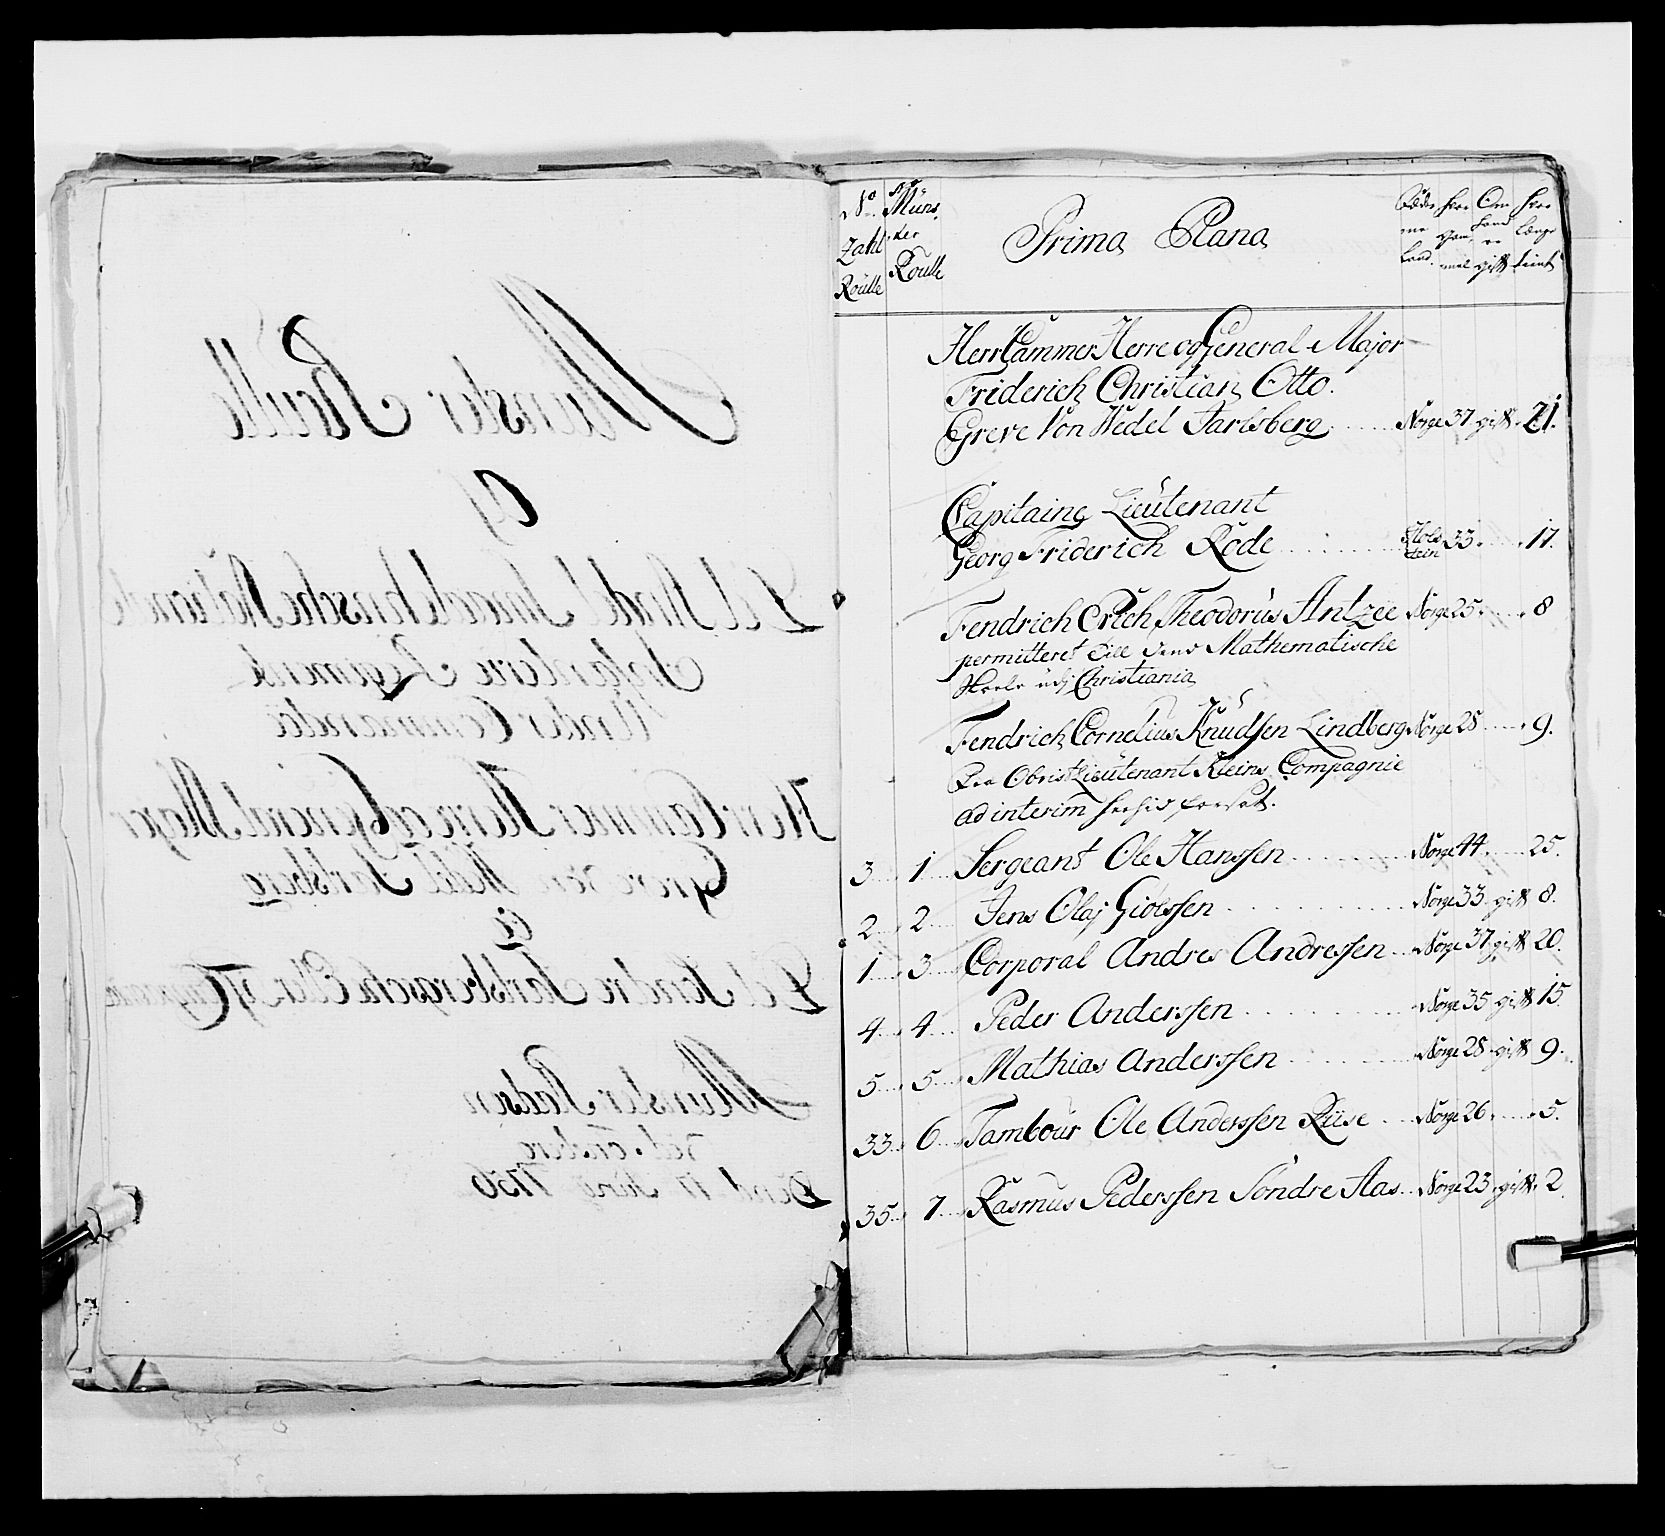 Munster Roulle
af
Det Andet Smaalehnsche Nationale
Infanterie Regiment
Under Commando
Herr Cammer Herre og General Major
Greve von Wedel Jarlsberg
Det Söndre Jarlsbergsche Eller Compagnie
Munster Pladsen
ved
Dend 17 Juny 1756
No. Zahl Roulle
No. Müns ter Roulle
Prima Plana
Föde land. hvor gam mel Om hand er gift hvor længe tient
Herr Cammer Herre og General Major
Friderich Christian Otto.
Greve Von Wedel Jarlsberg Norge 37 gift 21.
Capitaine Lieutenant
Georg Friderich Rode Hols tein 33 17.
Fendrich Erich Theodorus Antzee Norge 25 8
permitteret till dend Mathematische
Skoele udj Christiania
Fendrich Cornelius Knudsen Lindberg Norge 28 9.
Fra Obrist Lieutenant Kleins Compagnie
ad interim hrhid forsat.
3 1 Sergeant Ole Hanssen Norge 44 25.
2 2 Jens Olaj Giölssen Norge 33 gift 8.
1 3 Corporal Andres Andressen Norge 37 gift 20.
4 4 Peder Anderssen Norge 35 gift 15.
5 5 Mathias Anderssen Norge 28 gift 9.
33 6 Tambour Ole Anderssen Riise Norge 26 5.
35 7 Rasmus Pederssen Söndre Aas Norge 23 gift 2.